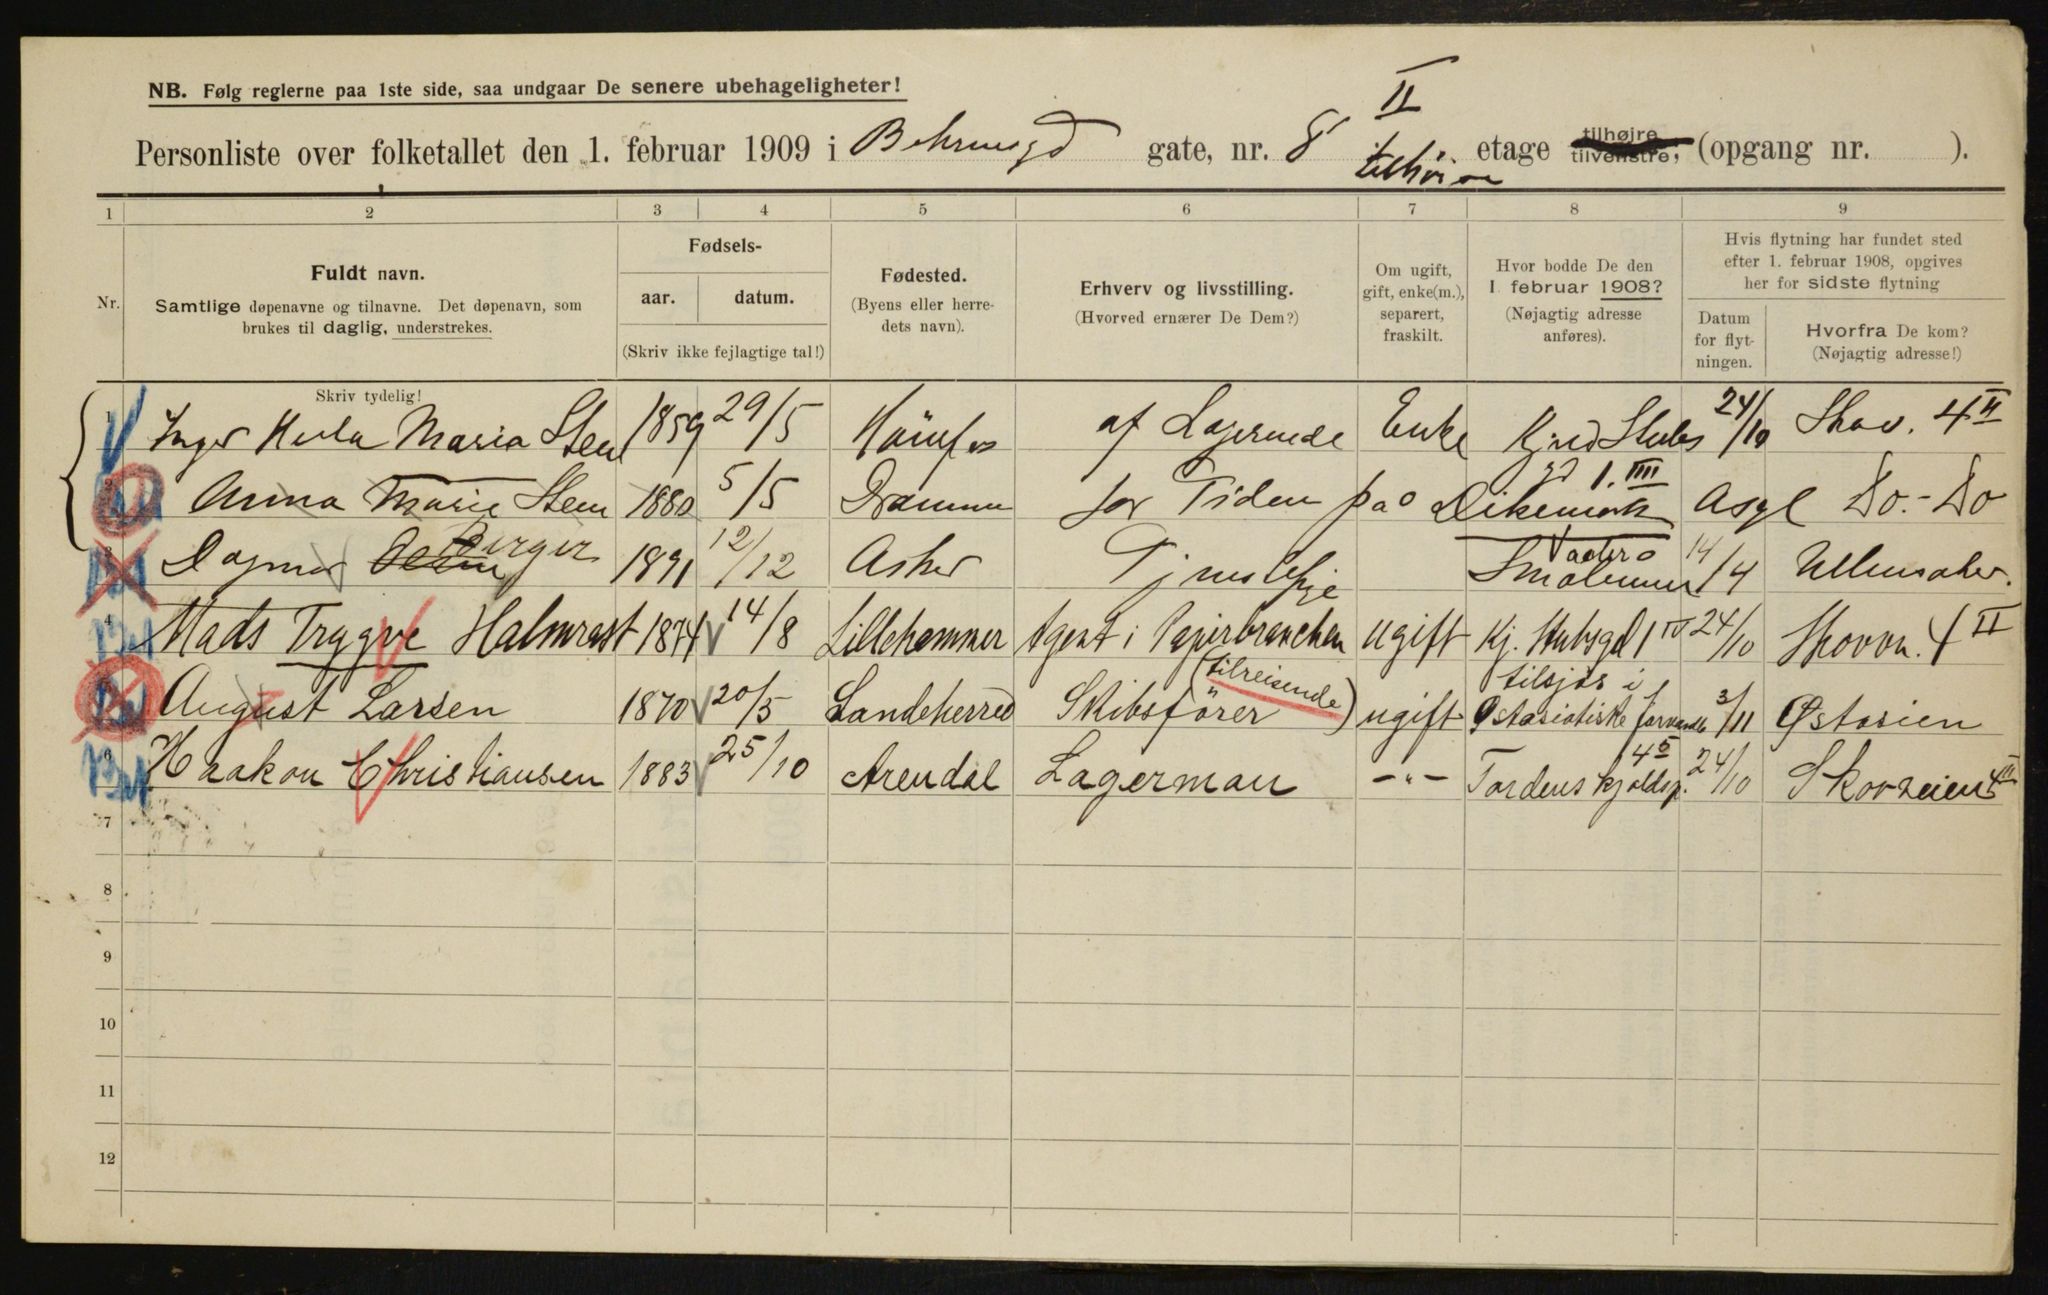 NB. Følg reglerne paa 1ste side, saa undgaar De senere ubehageligheter!
II
Personliste over folketallet den 1. februar 1909 i Behrensgd gate, nr. 8 etage tilhøjre, tilvenstre, (opgang nr. ).
tilhøire
1 2 3 4 5 6 7 8 9
Nr.
Fuldt navn.
Samtlige døpenavne og tilnavne. Det døpenavn, som
brukes til daglig, understrekes.
Fødsels-
aar. datum.
(Skriv ikke fejlagtige tal!)
Fødested.
(Byens eller herre-
dets navn).
Erhverv og livsstilling.
(Hvorved ernærer De Dem?)
Om ugift,
gift, enke(m.),
separert,
fraskilt.
Hvor bodde De den
1. februar 1908?
(Nøjagtig adresse
anføres).
Hvis flytning har fundet sted
efter 1. februar 1908, opgives
her for sidste flytning
Datum
for flyt-
ningen.
Hvorfra De kom?
(Nøjagtig adresse!)
Skriv tydelig!
1 Inger Maria Steen 1859 29/5 Hönefos af Logerende Enke 24/10 Skov. 4 II
2 Anna Marie Steen 1880 5/5 Drammen for Tiden paa Dikemark Asyl Do.- Do
3 Dagmar Berger 1891 12/12 Asker Tjenestepige 14/4 Ullensaker.
4 Mads Trygve Halmrast 1874 14/8 Lillehammer Agent i Papirbranchen ugift Kj. Stubsgd 1 IV 24/10 Skovvn. 4 II
5 August Larsen 1870 20/5 Landeherred Skibsfører (tilreisende) ugift tilsjøs i Østasiatiske farvande 3/11 Østasien
6 Haakon Christiansen 1883 25/10 Arendal Lagerman -"- Tordenskjoldsp. 4 5 24/10 Skovveien 4 II
7
8
9
10
11
12